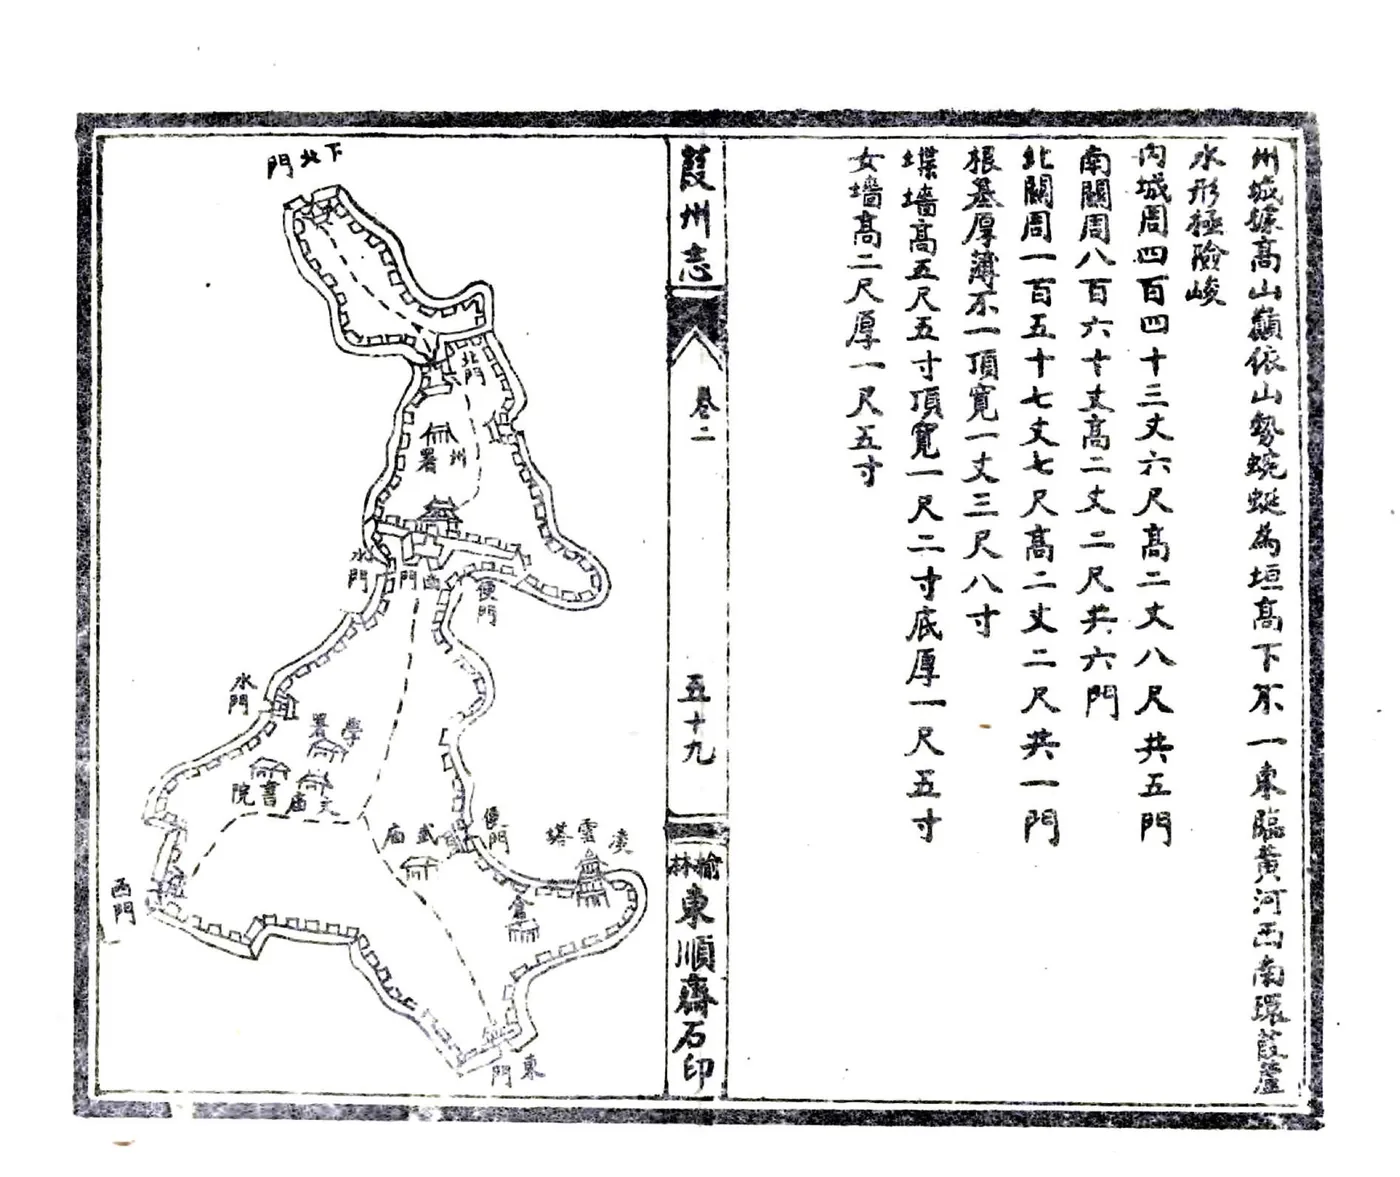 州城據高山巔依山勢蜿蜒為垣高下不一東臨黃河西南環葭蘆
水形極險峻
內城周四百四十三丈六尺高二丈八尺共五門
南關周八百六十丈高二丈二尺共六門
北關周一百五十七丈七尺高二丈二尺共一門
根基厚薄不一頂寬一丈三尺八寸
堞墻高五尺五寸頂寬一尺二寸底厚一尺五寸
女墻高二尺厚一尺五寸
葭州志
卷二
五十九
榆林
東順齋石印
下北門
北門
州署
水門
南門
便門
水門
學署
書院
文廟
武廟
便門
凌雲塔
倉
西門
東門